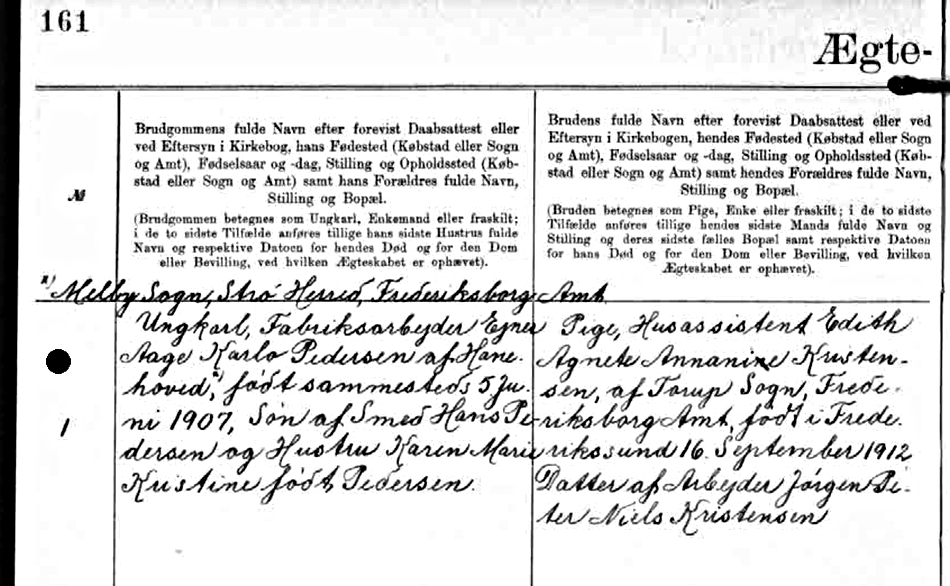 161
Ægte-
№
Brudgommens fulde Navn efter forevist Daabsattest eller
ved Eftersyn i Kirkebog, hans Fødested (Købstad eller Sogn
og Amt), Fødselsaar og -dag, Stilling og Opholdssted (Køb-
stad eller Sogn og Amt) samt hans Forældres fulde Navn,
Stilling og Bopæl.
(Brudgommen betegnes som Ungkarl, Enkemand eller fraskilt;
i de to sidste Tilfælde anføres tillige hans sidste Hustrus fulde
Navn og respektive Datoen for hendes Død og for den Dom
eller Bevilling, ved hvilken Ægteskabet er ophævet).
Brudens fulde Navn efter forevist Daabsattest eller ved
Eftersyn i Kirkebogen, hendes Fødested (Købstad eller Sogn
og Amt), Fødselsaar og -dag, Stilling og Opholdssted (Køb-
stad eller Sogn og Amt) samt hendes Forældres fulde Navn,
Stilling og Bopæl.
(Bruden betegnes som Pige, Enke eller fraskilt; i de to sidste
Tilfælde anføres tillige hendes sidste Mands fulde Navn og
Stilling og deres sidste fælles Bopæl samt respektive Datoen
for hans Død og for den Dom eller Bevilling, ved hvilken
Ægteskabet er ophævet).
x) Melby Sogn, Strø Herred, Frederiksborg Amt
1
Ungkarl, Fabriksarbejder Ejner
Aage Karlo Pedersen af Hane-
hoved,x) født sammesteds 5 Ju-
ni 1907, Søn af Smed Hans Pe-
dersen og Hustru Karen Marie
Kristine født Pedersen.
Pige, Husassistent Edith
Agnete Annanine Kristen-
sen, af Torup Sogn, Frede-
riksborg Amt, født i Frede-
rikssund 16. September 1912
Datter af Arbejder Jörgen Pe-
ter Niels Kristensen